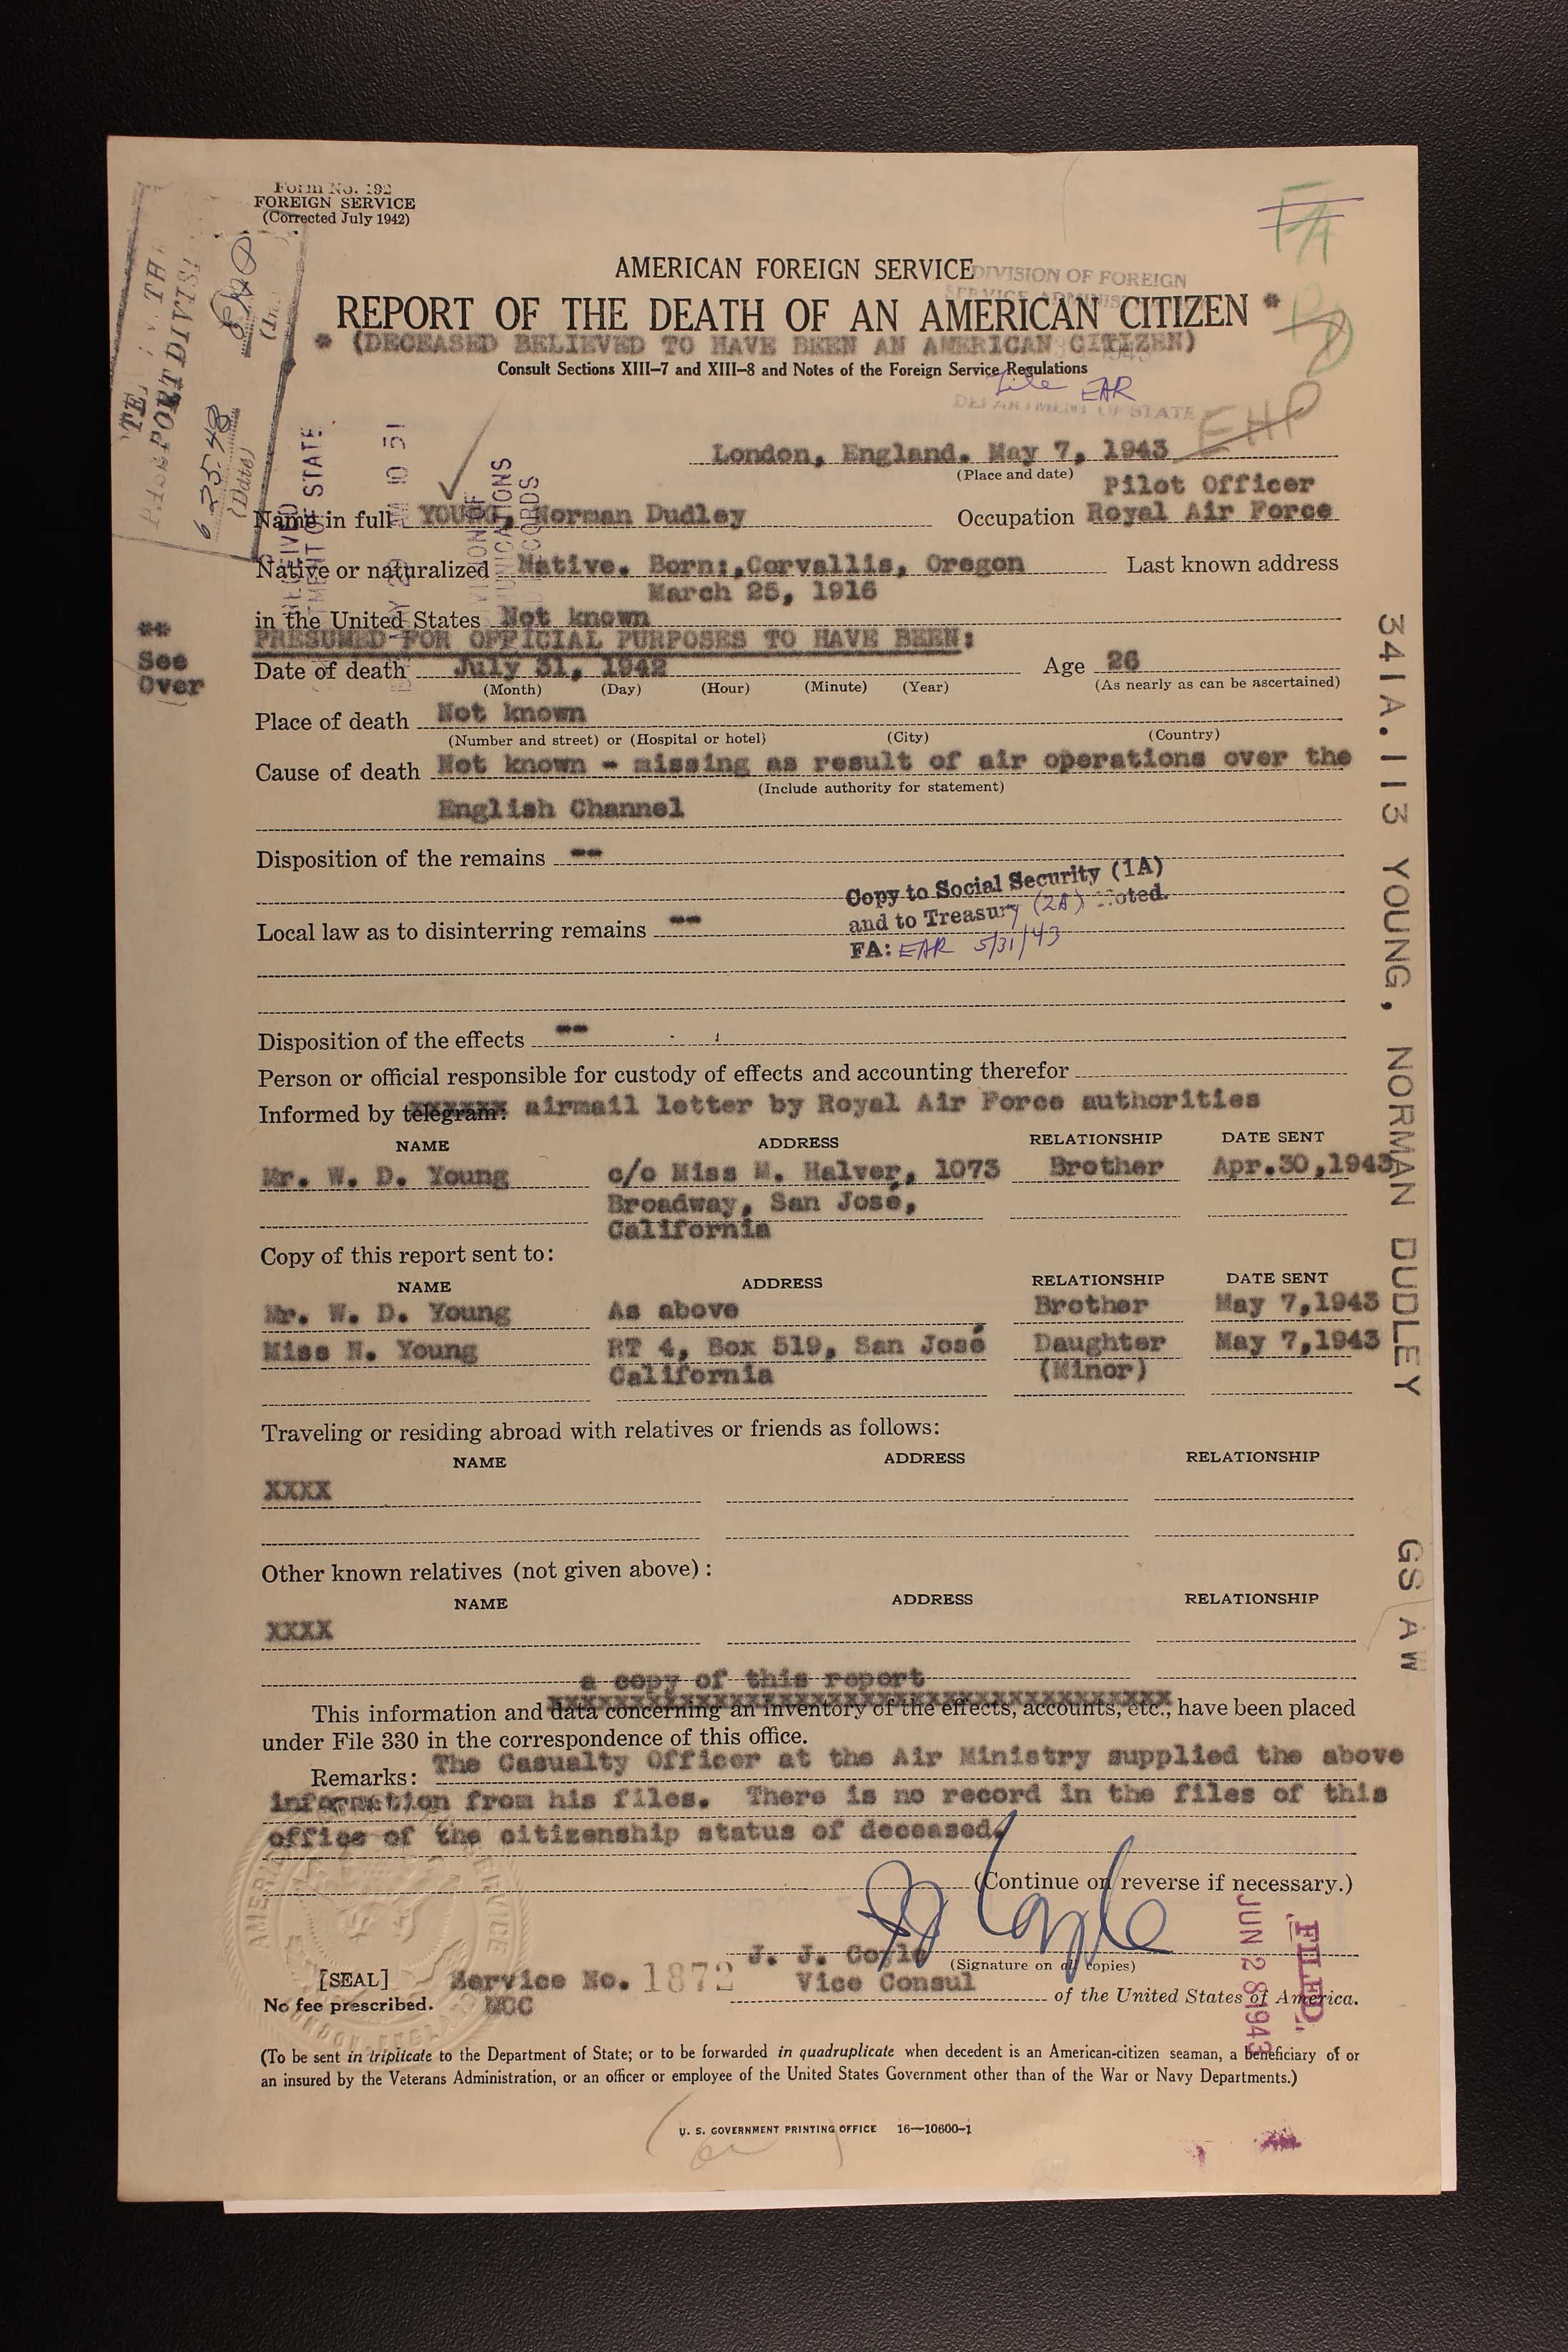 Form No. 192
FOREIGN SERVICE
(Corrected July 1942)
AMERICAN FOREIGN SERVICE
DIVISION OF FOREIGN
REPORT OF THE DEATH OF AN AMERICAN CITIZEN *
* (DECEASED BELIEVED TO HAVE BEEN AN AMERICAN CITIZEN)
Consult Sections XIII–7 and XIII–8 and Notes of the Foreign Service Regulations
File EAR
DEPARTMENT OF STATE
FA
EHP
6-25-48
(Date)
London, England. May 7, 1943
(Place and date)
Pilot Officer
Name in full YOUNG, Norman Dudley Occupation Royal Air Force
Native or naturalized Native. Born:,Corvallis, Oregon Last known address
March 25, 1916
in the United States Not known
PRESUMED FOR OFFICIAL PURPOSES TO HAVE BEEN:
** See Over
Date of death July 31, 1942 Age 26
(Month) (Day) (Hour) (Minute) (Year) (As nearly as can be ascertained)
Place of death Not known
(Number and street) or (Hospital or hotel) (City) (Country)
Cause of death Not known - missing as result of air operations over the
(Include authority for statement)
English Channel
Disposition of the remains --
Copy to Social Security (1A)
and to Treasury (2A) Noted.
Local law as to disinterring remains --
FA: EAR 5/31/43
Disposition of the effects --
Person or official responsible for custody of effects and accounting therefor
Informed by telegram: airmail letter by Royal Air Force authorities
NAME ADDRESS RELATIONSHIP DATE SENT
Mr. W. D. Young c/o Miss M. Halver, 1073 Brother Apr.30,1943
Broadway, San José,
California
Copy of this report sent to:
NAME ADDRESS RELATIONSHIP DATE SENT
Mr. W. D. Young As above Brother May 7,1943
Miss N. Young RT 4, Box 519, San José Daughter May 7,1943
California (Minor)
Traveling or residing abroad with relatives or friends as follows:
NAME ADDRESS RELATIONSHIP
XXXX
Other known relatives (not given above):
NAME ADDRESS RELATIONSHIP
XXXX
a copy of this report
This information and data concerning an inventory of the effects, accounts, etc., have been placed
under File 330 in the correspondence of this office.
Remarks: The Casualty Officer at the Air Ministry supplied the above
information from his files. There is no record in the files of this
office of the citizenship status of deceased.
(Continue on reverse if necessary.)
J. J. Coyle
(Signature on all copies)
[SEAL] Service No. 1872 Vice Consul
No fee prescribed. MCC of the United States of America.
(To be sent in triplicate to the Department of State; or to be forwarded in quadruplicate when decedent is an American-citizen seaman, a beneficiary of or
an insured by the Veterans Administration, or an officer or employee of the United States Government other than of the War or Navy Departments.)
U. S. GOVERNMENT PRINTING OFFICE 16—10600-1
341A.113 YOUNG, NORMAN DUDLEY GS AW
FILED
JUN 28 1943